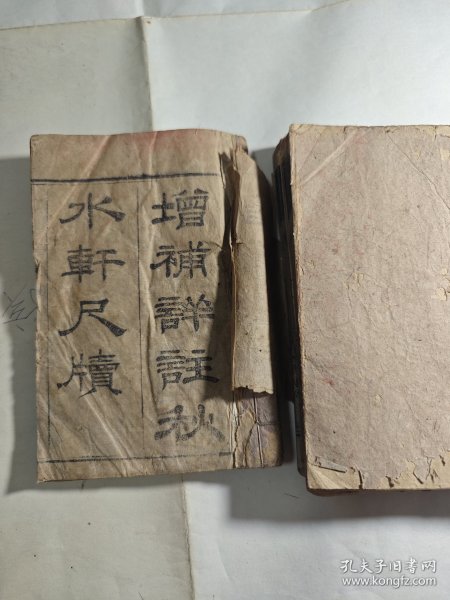 增補詳註秋
水軒尺牘
孔夫子旧书网
www.kongfz.com